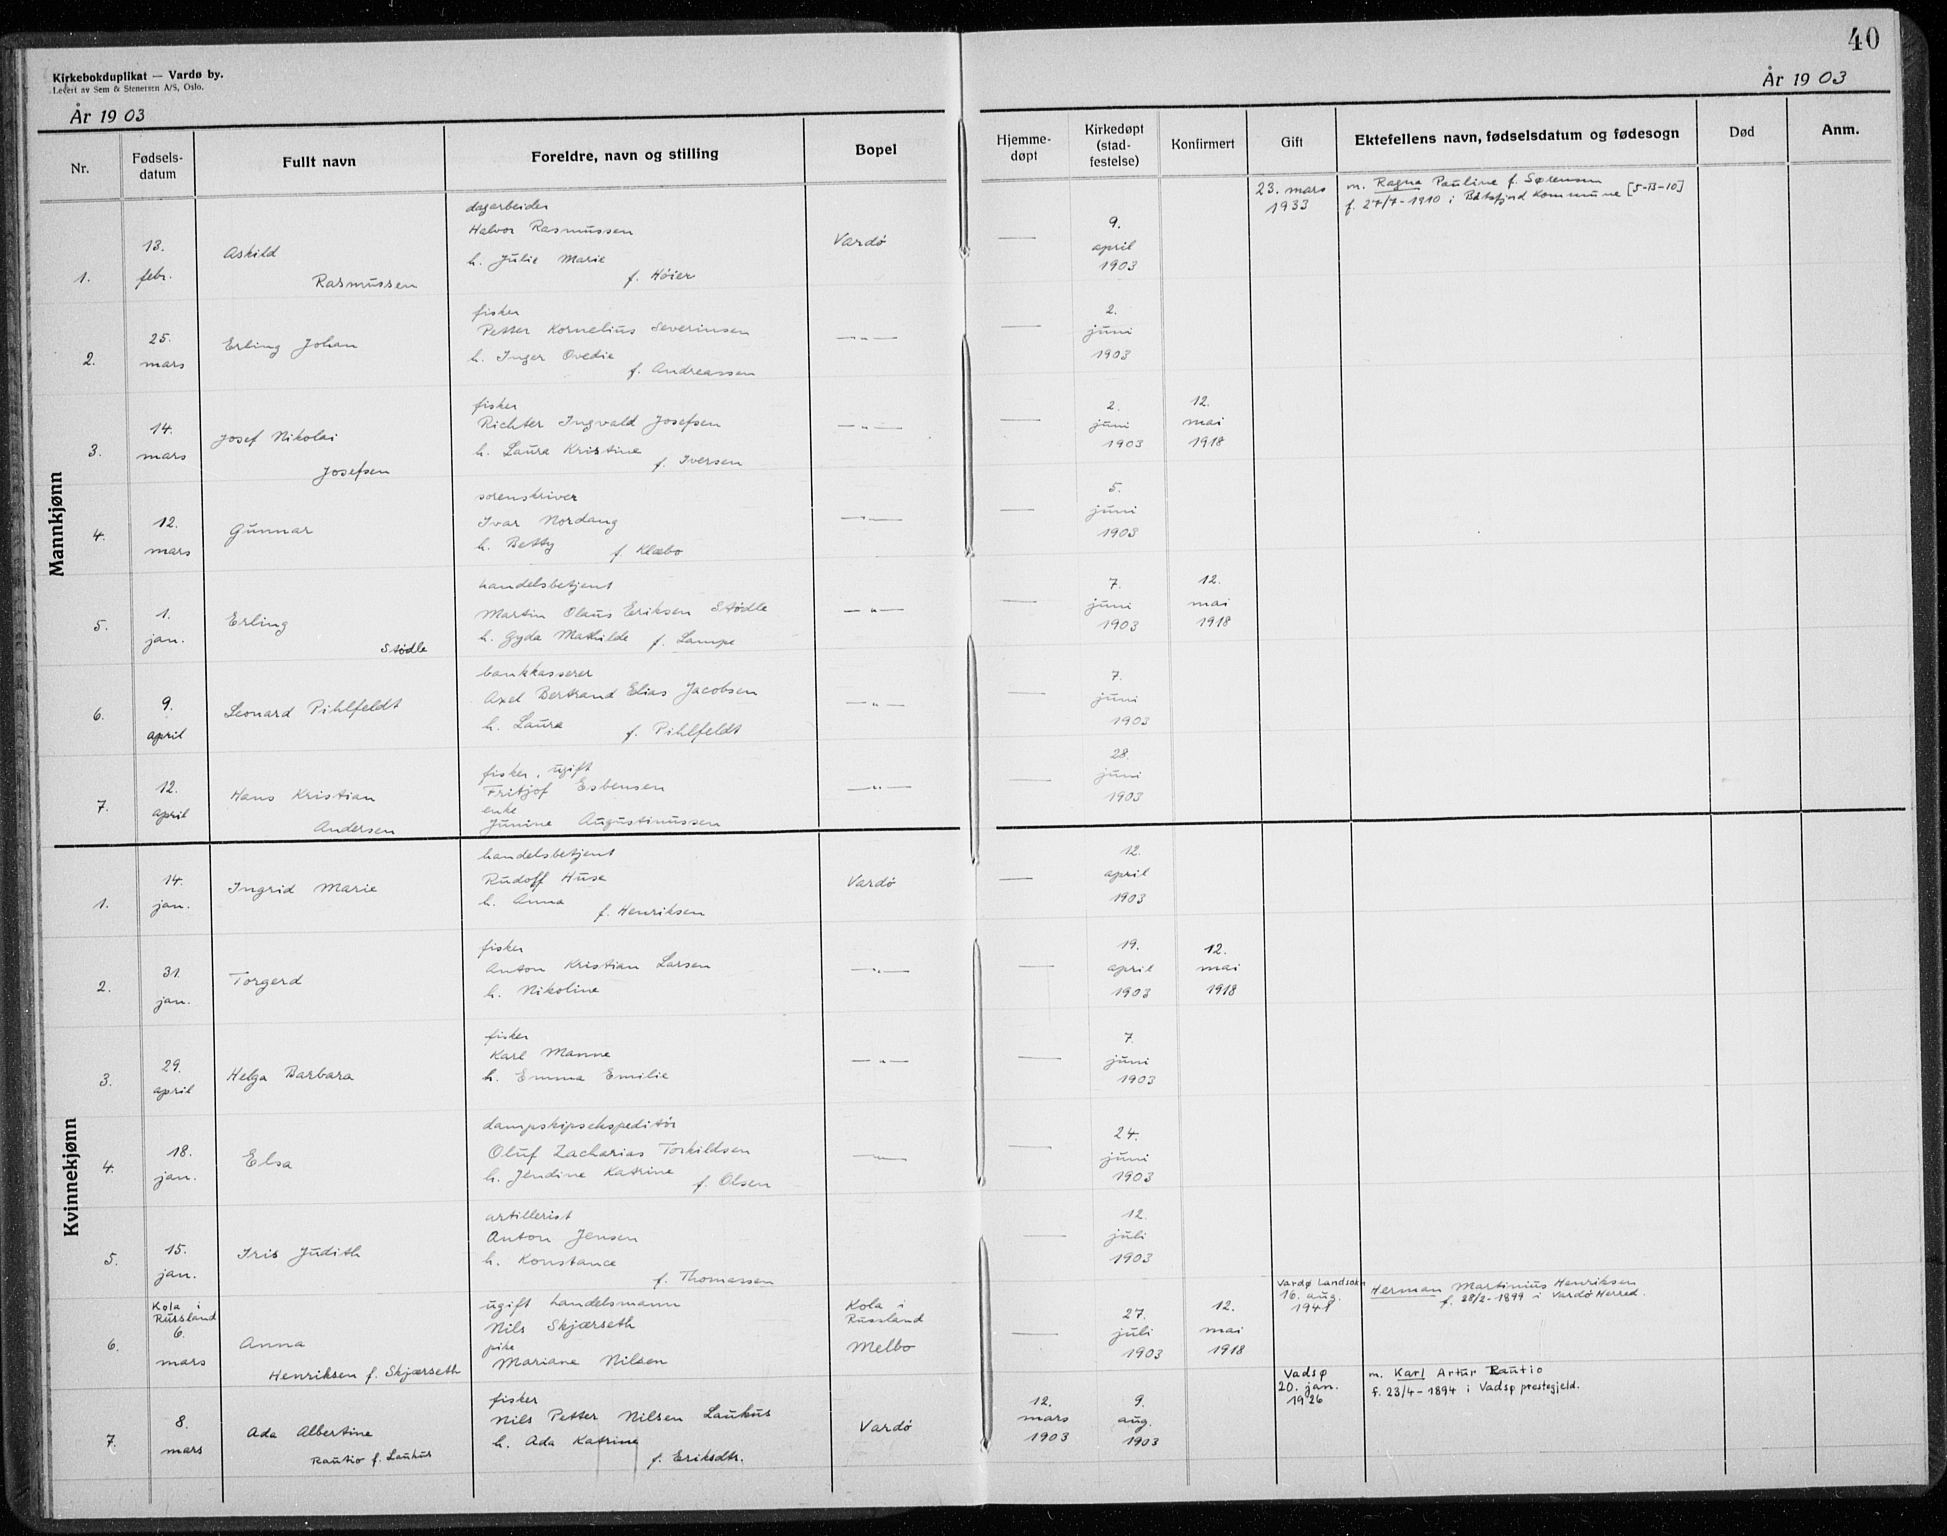 40
Kirkebokduplikat — Vardø by.
Levert av Sem & Stenersen A/S, Oslo.
År 1903
År 1903
Nr. Fødsels-datum Fullt navn Foreldre, navn og stilling Bopel Hjemme-døpt Kirkedøpt (stad-festelse) Konfirmert Gift Ektefellens navn, fødselsdatum og fødesogn Død Anm.
Mannkjønn
dagarbeider 23. mars m. Ragna Pauline f. Sørensen
Halvor Rasmussen 1933 f. 27/7-1910 i Båtsfjord Kommune [5-B-10]
13. Askild Vardø — 9.
h. Julie Marie april
1. febr. Rasmussen f. Höier 1903
fisker 2.
25. Erling Johan Petter Kornelius Severinsen —„— — juni
2. mars h. Inger Ovedie 1903
f. Andreassen
fisker 2. 12.
14. Josef Nikolai Richter Ingvald Josefsen —„— — juni mai
3. mars h. Laura Kristine 1903 1918
Josefsen f. Iversen
sorenskriver 5.
12. Gunnar Ivar Nordang —„— — juni
4. mars h. Betty f. Klæbo 1903
handelsbetjent 7. 12.
1. Erling Martin Olaus Eriksen Stødle —„— — juni mai
5. jan. Stødle h. Gyda Mathilde f. Lampe 1903 1918
bankkasserer 7.
9. Leonard Pihlfeldt Axel Bertrand Elias Jacobsen —„— — juni
6. april h. Laura f. Pihlfeldt 1903
fisker, ugift 28.
12. Hans Kristian Fritjof Esbensen —„— — juni
7. april enke 1903
Andersen Junine Augustinussen
Kvinnekjønn
handelsbetjent 12.
14. Ingrid Marie Rudolf Huse Vardø — april
1. jan. h. Anna f. Henriksen 1903
fisker 19. 12.
31. Torgerd Anton Kristian Larsen —„— — april mai
2. jan. h. Nikoline 1903 1918
fisker 7.
29. Helga Barbara Karl Manne —„— — juni
3. april h. Emma Emilie 1903
dampskipsekspeditör 24.
18. Elsa Oluf Zacharias Torkildsen —„— — juni
4. jan. h. Jendine Katrine f. Olsen 1903
artillerist 12.
15. Iris Judith Anton Jensen — juli
5. jan. h. Konstance 1903
f. Thomassen
Kola i ugift handelsmann Kola i 27. 12. Vardø Landsokn Herman Martinius Henriksen
Russland Nils Skjærseth Russland — juli mai 16. aug. f. 28/2-1899 i Vardø Herred.
6. 6. Anna pike Melbo 1903 1918 1941
mars Henriksen f. Skjærseth Mariane Nilsen
fisker 12. 9. Vadsø m. Karl Artur Rautio
8. Ada Albertine Nils Petter Nilsen Laukus Vardø mars aug. 20. jan. f. 23/4-1894 i Vadsø prestegjeld.
7. mars Rautio f. Laukus h. Ada Katrine 1903 1903 1926
f. Eriksdtr.